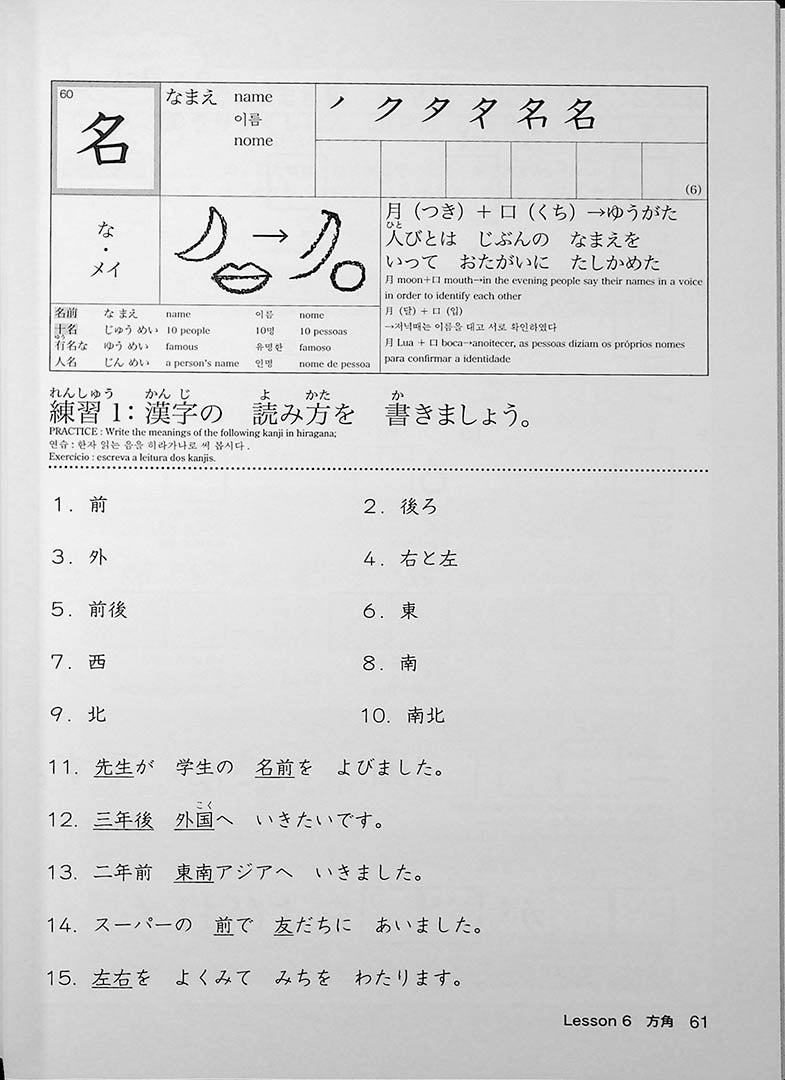 60
名
なまえ name
이름
nome
ノ ク タ タ 名 名
(6)
な
・
メイ
月（つき）＋口（くち）→ゆうがた
ひと
人びとは じぶんの なまえを
いって おたがいに たしかめた
月 moon＋口 mouth→in the evening people say their names in a voice
in order to identify each other
月 (달) + 口 (입)
→저녁때는 이름을 대고 서로 확인하였다
月 Lua + 口 boca→anoitecer, as pessoas diziam os próprios nomes
para confirmar a identidade
名前 な まえ name 이름 nome
十名 じゅう めい 10 people 10명 10 pessoas
ゆう
有名な ゆう めい famous 유명한 famoso
人名 じん めい a person's name 인명 nome de pessoa
れんしゅう かん じ よ かた か
練習 1：漢字の 読み方を 書きましょう。
PRACTICE : Write the meanings of the following kanji in hiragana;
연습 : 한자 읽는 음을 히라가나로 써 봅시다.
Exercício : escreva a leitura dos kanjis.
1. 前 2. 後ろ
3. 外 4. 右と左
5. 前後 6. 東
7. 西 8. 南
9. 北 10. 南北
11. 先生が 学生の 名前を よびました。
こく
12. 三年後 外国へ いきたいです。
13. 二年前 東南アジアへ いきました。
14. スーパーの 前で 友だちに あいました。
15. 左右を よくみて みちを わたります。
Lesson 6 方角 61